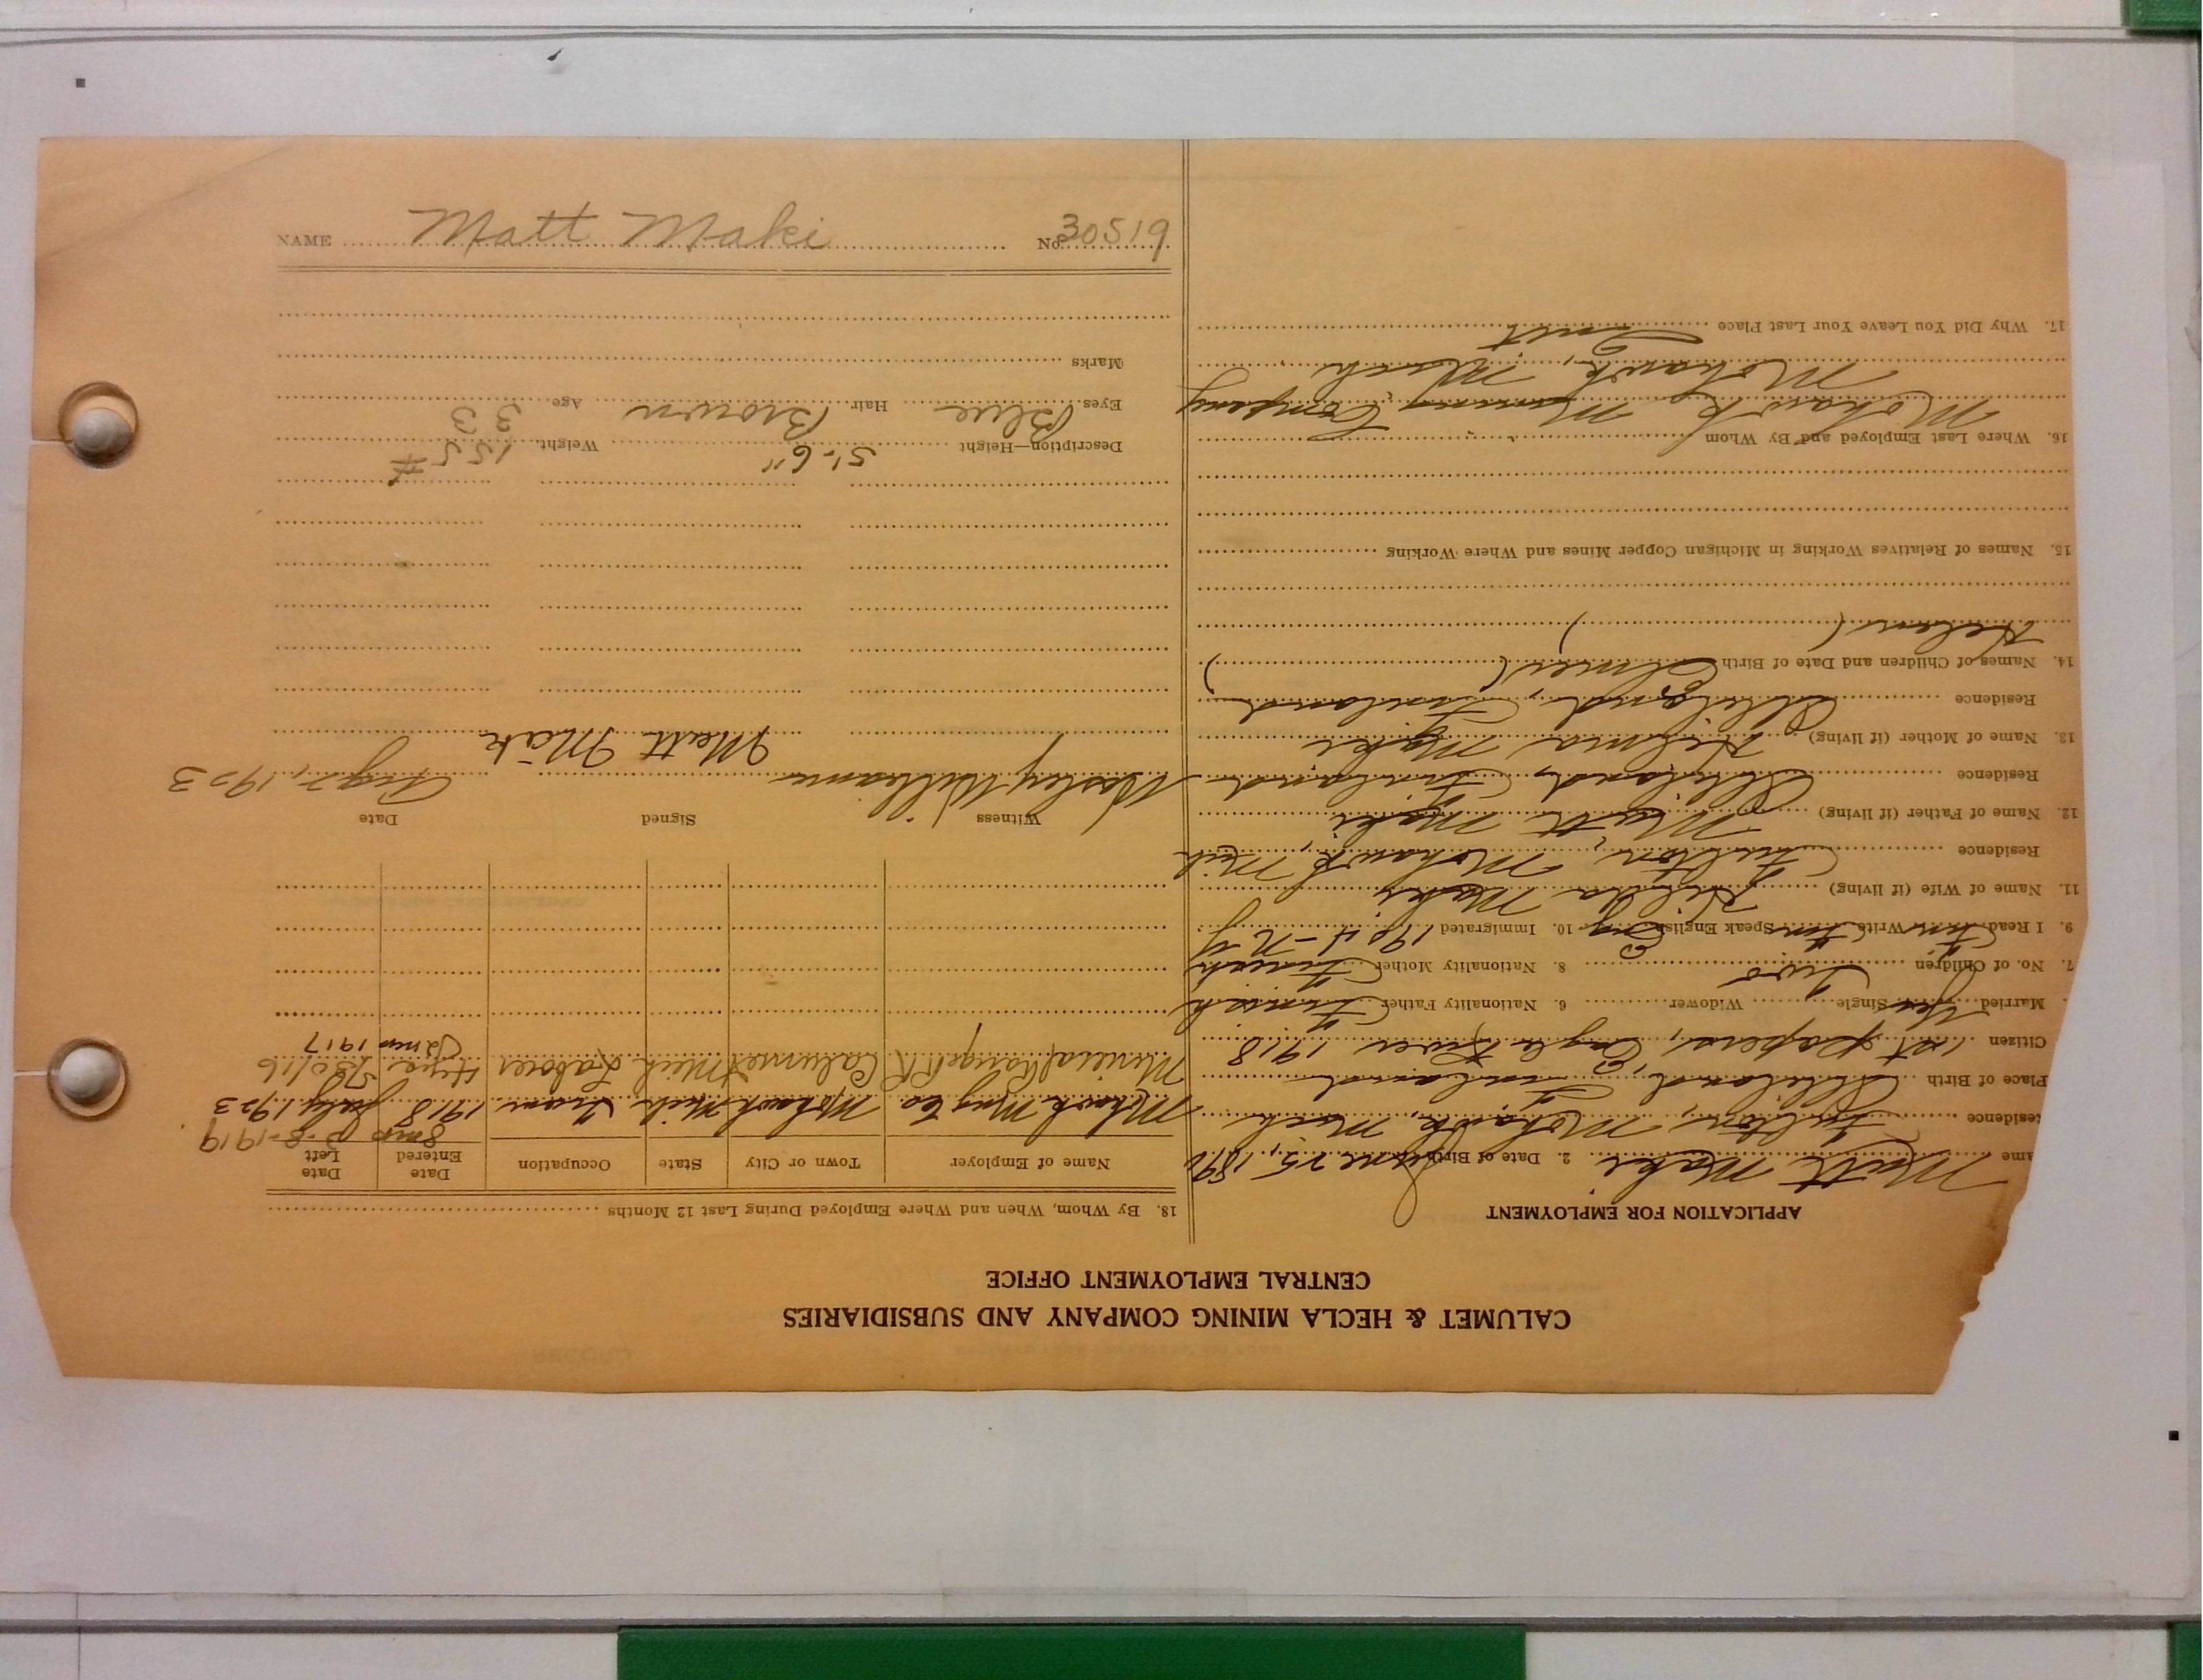 CALUMET & HECLA MINING COMPANY AND SUBSIDIARIES
CENTRAL EMPLOYMENT OFFICE
APPLICATION FOR EMPLOYMENT
ame Matt Maki 2. Date of Birth June 25, 1890
Residence Fulton, Mohawk, Mich
Place of Birth Finland
Citizen 1st papers, Eagle River 1918
Married Yes Single Widower 6. Nationality Father Finnish
7. No. of Children Two 8. Nationality Mother Finnish
9. I Read Finn Write Finn Speak English Eng 10. Immigrated 1904-NY
11. Name of Wife (if living) Hilda Maki
Residence Fulton, Mohawk, Mich
12. Name of Father (if living) Matt Maki
Residence Finland
13. Name of Mother (if living) Hilma Maki
Residence Finland
14. Names of Children and Date of Birth Elmer ( )
Helen ( )
15. Names of Relatives Working in Michigan Copper Mines and Where Working
16. Where Last Employed and By Whom
Mohawk Mining Company
Mohawk, Mich
17. Why Did You Leave Your Last Place Quit
18. By Whom, When and Where Employed During Last 12 Months
Name of Employer Town or City State Occupation Date Entered Date Left
8-1919
Mohawk Mng Co Mohawk Mich Tram 1918 July 1923
Mineral Range RR Calumet Mich Laborer
1917
Witness Signed Date
Wesley Williams Matt Mäk Aug 2, 1923
Description—Height 5'-6" Weight 155#
Eyes Blue Hair Brown Age 33
Marks
NAME Matt Maki No. 30519